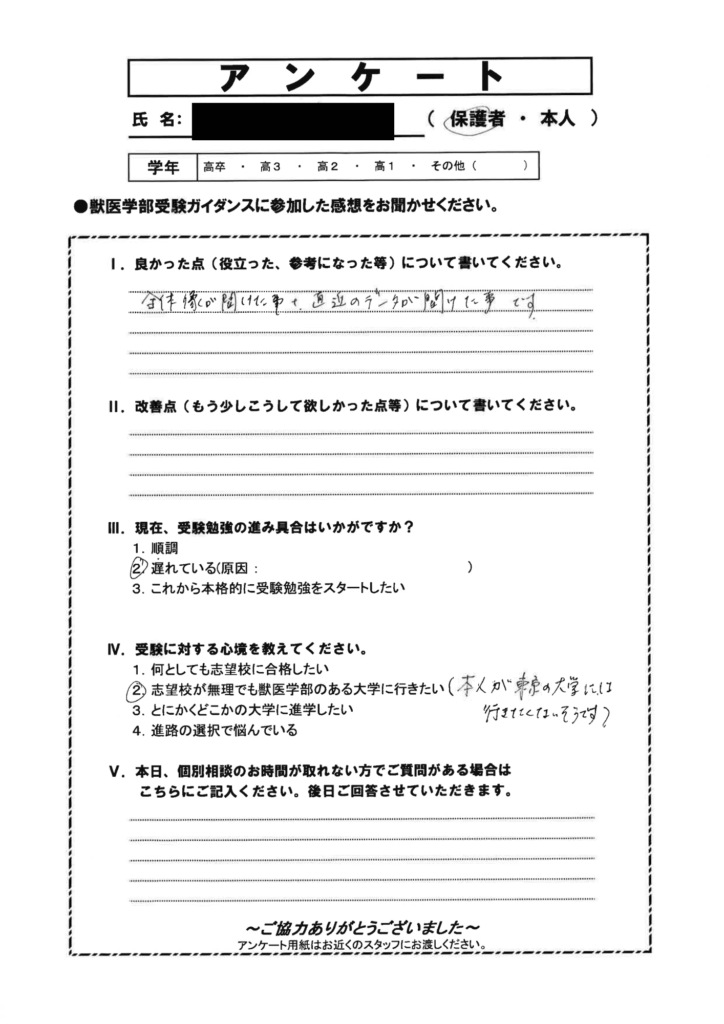 アンケート
氏 名: ( 保護者 ・ 本人 )
学年 高卒 ・ 高3 ・ 高2 ・ 高1 ・ その他 ( )
●獣医学部受験ガイダンスに参加した感想をお聞かせください。
Ⅰ. 良かった点(役立った、参考になった等)について書いてください。
全体像が聞けた事と、直近のデータが聞けた事です
Ⅱ. 改善点(もう少しこうして欲しかった点等)について書いてください。
Ⅲ. 現在、受験勉強の進み具合はいかがですか?
1. 順調
2. 遅れている(原因: )
3. これから本格的に受験勉強をスタートしたい
Ⅳ. 受験に対する心境を教えてください。
1. 何としても志望校に合格したい
2. 志望校が無理でも獣医学部のある大学に行きたい(本人が東京の大学には
3. とにかくどこかの大学に進学したい 行きたくないそうです)
4. 進路の選択で悩んでいる
Ⅴ. 本日、個別相談のお時間が取れない方でご質問がある場合は
こちらにご記入ください。後日ご回答させていただきます。
～ご協力ありがとうございました～
アンケート用紙はお近くのスタッフにお渡しください。